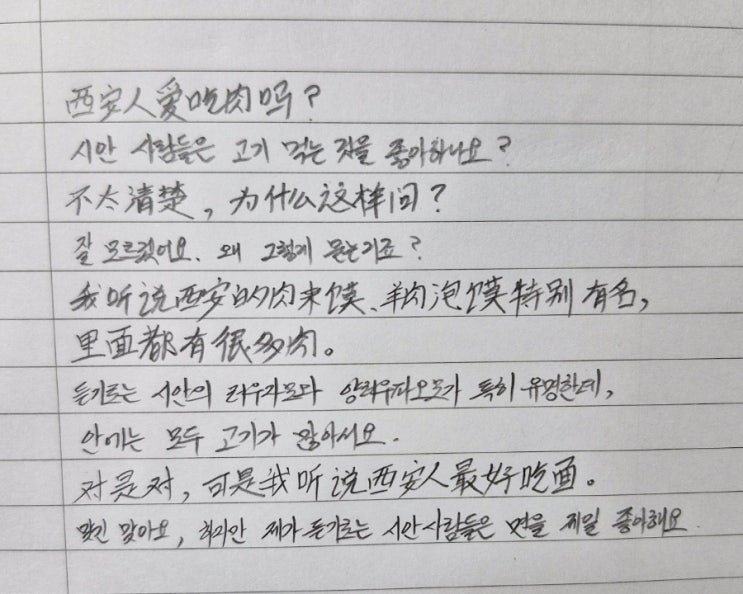 西安人爱吃肉吗？
시안 사람들은 고기 먹는 것을 좋아하나요?
不太清楚，为什么这样问？
잘 모르겠어요. 왜 그렇게 묻는거죠?
我听说西安的肉夹馍、羊肉泡馍特别有名，
里面都有很多肉。
듣기로는 시안의 러우쟈모와 양러우파오모가 특히 유명한데,
안에는 모두 고기가 많아서요.
对是对，可是我听说西安人最好吃面。
맞긴 맞아요, 하지만 제가 듣기로는 시안사람들은 면을 제일 좋아해요.